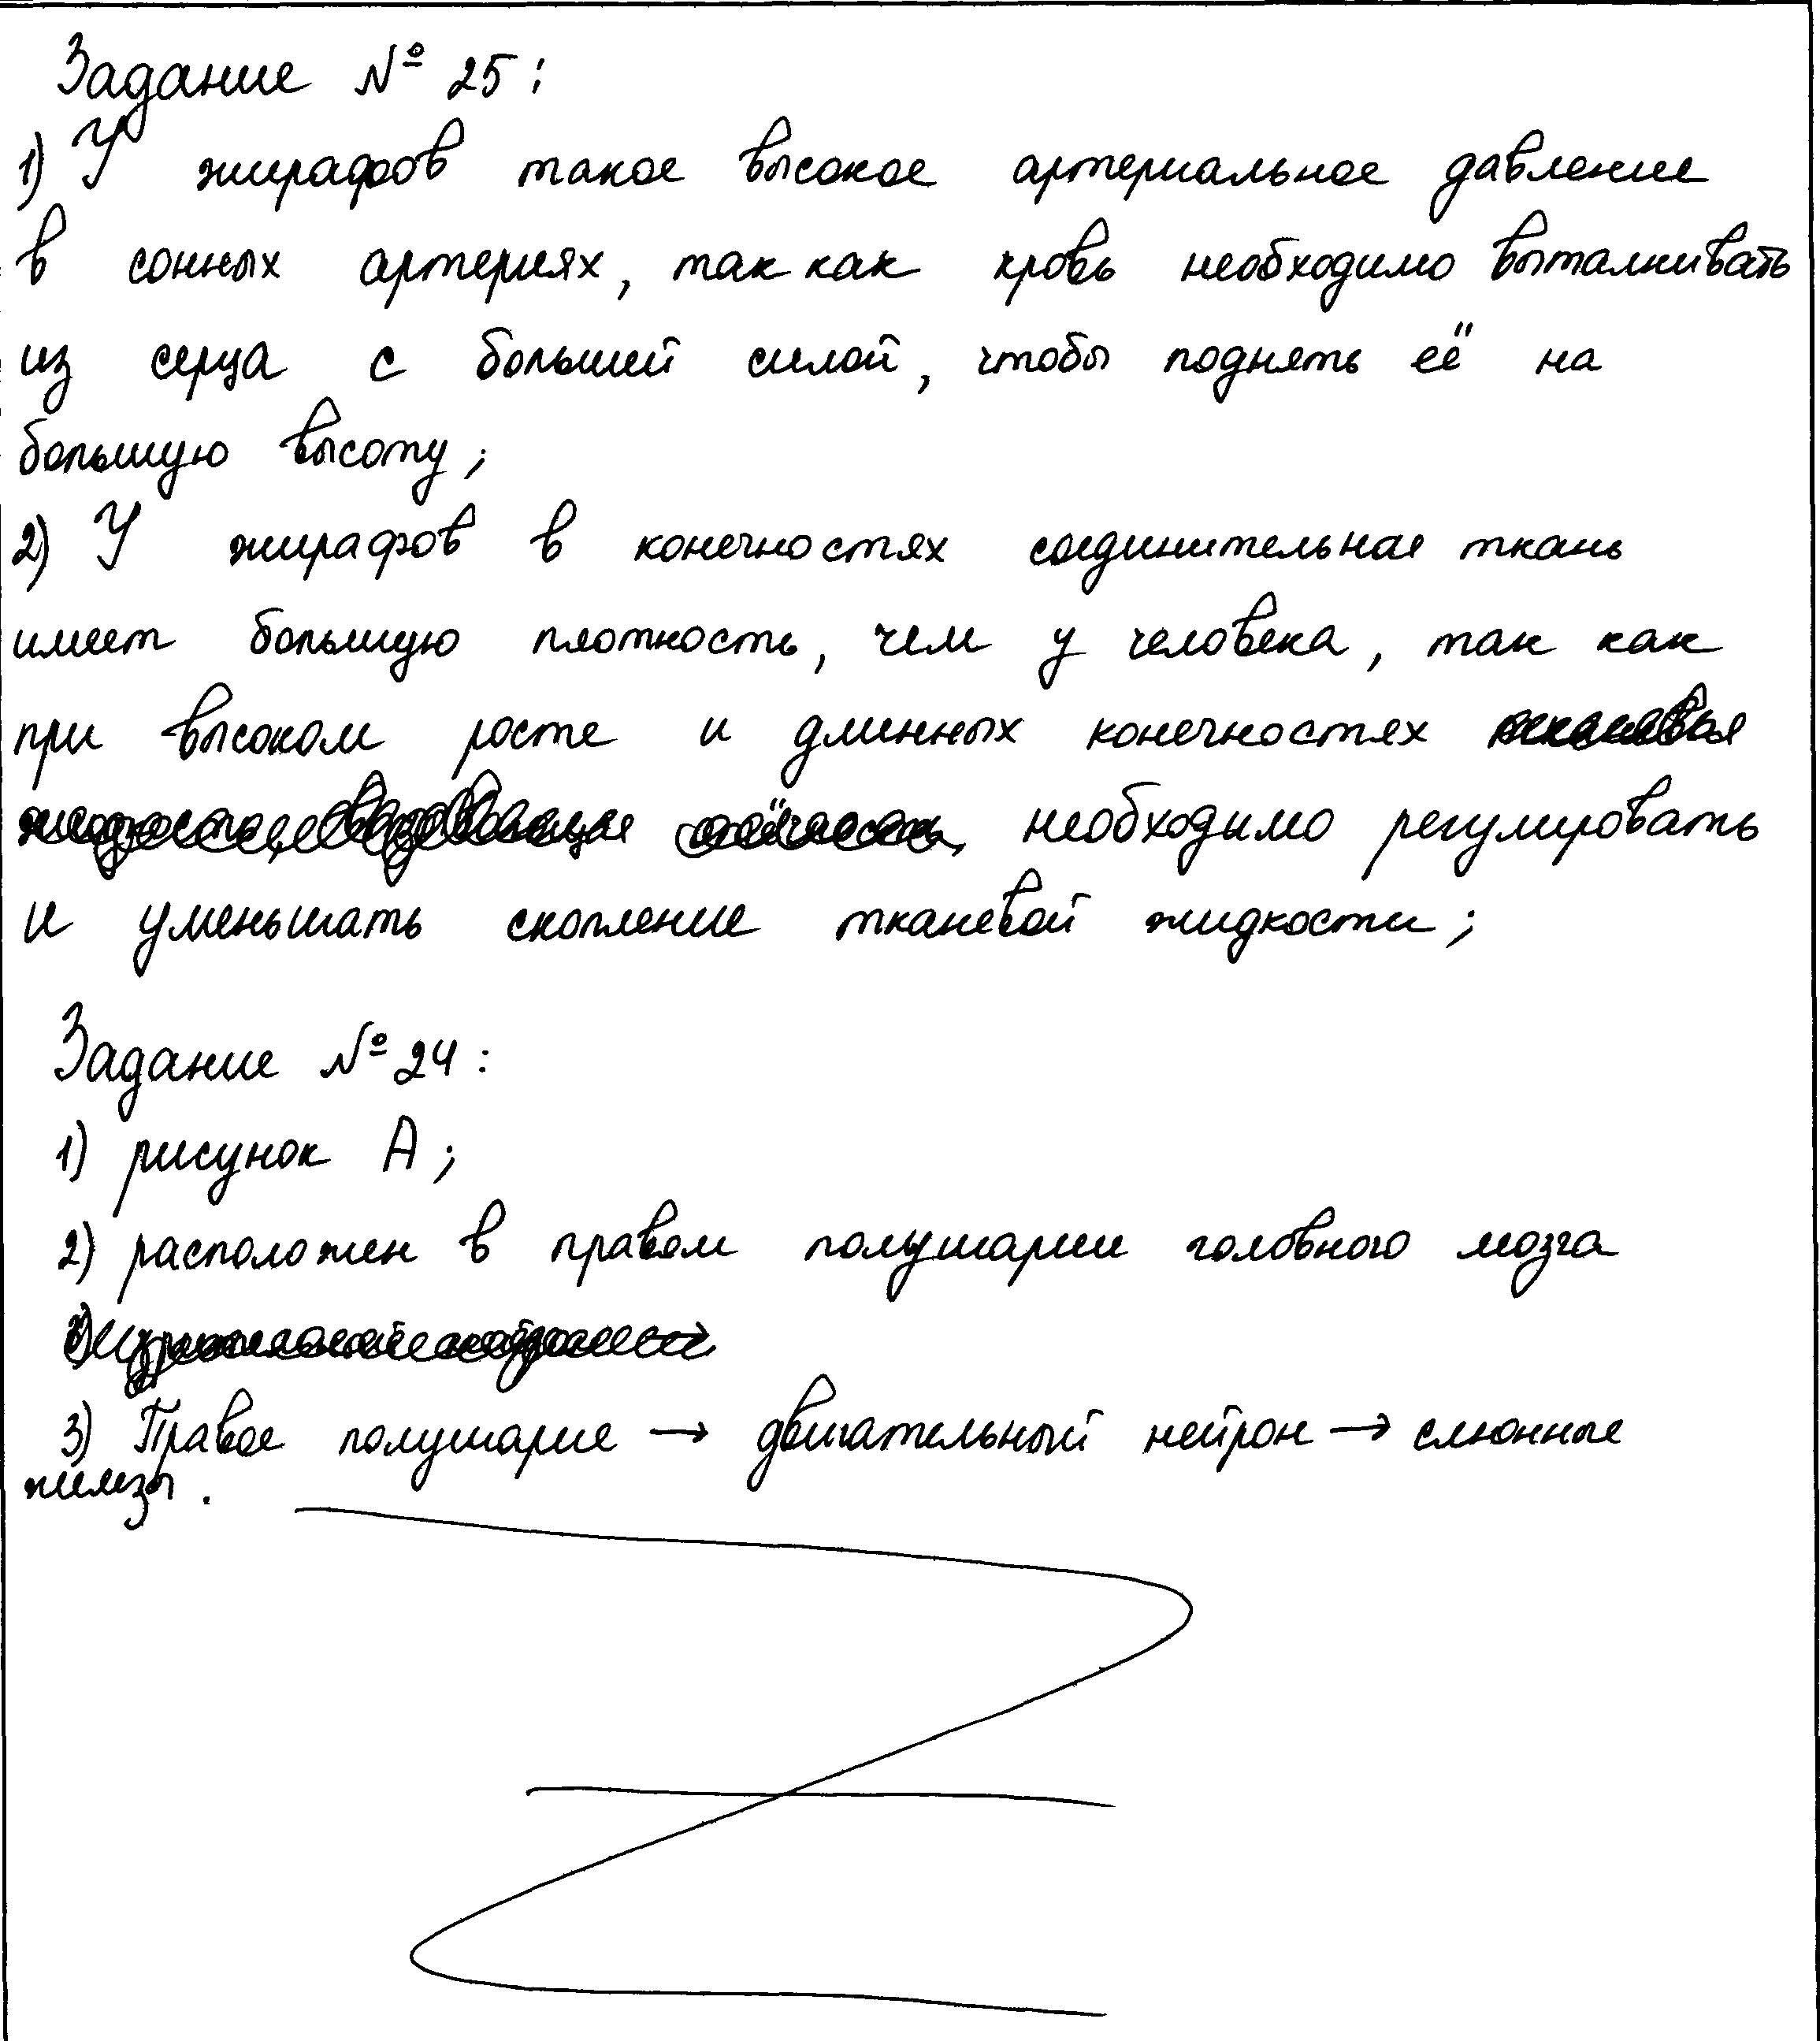 Задание № 25:
1) У жирафов такое высокое артериальное давление
в сонных артериях, так как кровь необходимо выталкивать
из серца с большей силой, чтобы поднять её на
большую высоту;
2) У жирафов в конечностях соединительная ткань
имеет большую плотность, чем у человека, так как
при высоком росте и длинных конечностях
необходимо регулировать
и уменьшать скопление тканевой жидкости;
Задание № 24:
1) рисунок А;
2) расположен в правом полушарии головного мозга
3) Правое полушарие → двигательный нейрон → слюнные
железы.